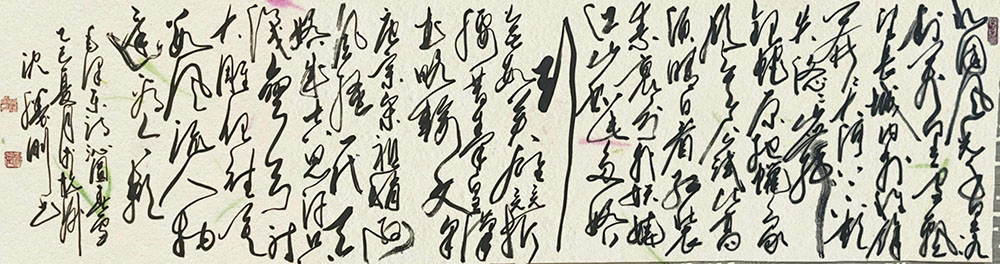 北国风光千里冰
封万里雪飘
望长城内外惟余
莽莽大河上下顿
失滔滔山舞
银蛇原驰蜡象
欲与天公试比高
须晴日看红装
素裹分外妖娆
江山如此多娇
引
无数英雄竞折
腰惜秦皇汉
武略输文采
唐宗宋祖稍逊
风骚一代天
骄成吉思汗只
识弯弓射
大雕俱往矣
数风流人物
还看今朝
毛泽东词沁园春雪
乙巳夏月于杭州
沈